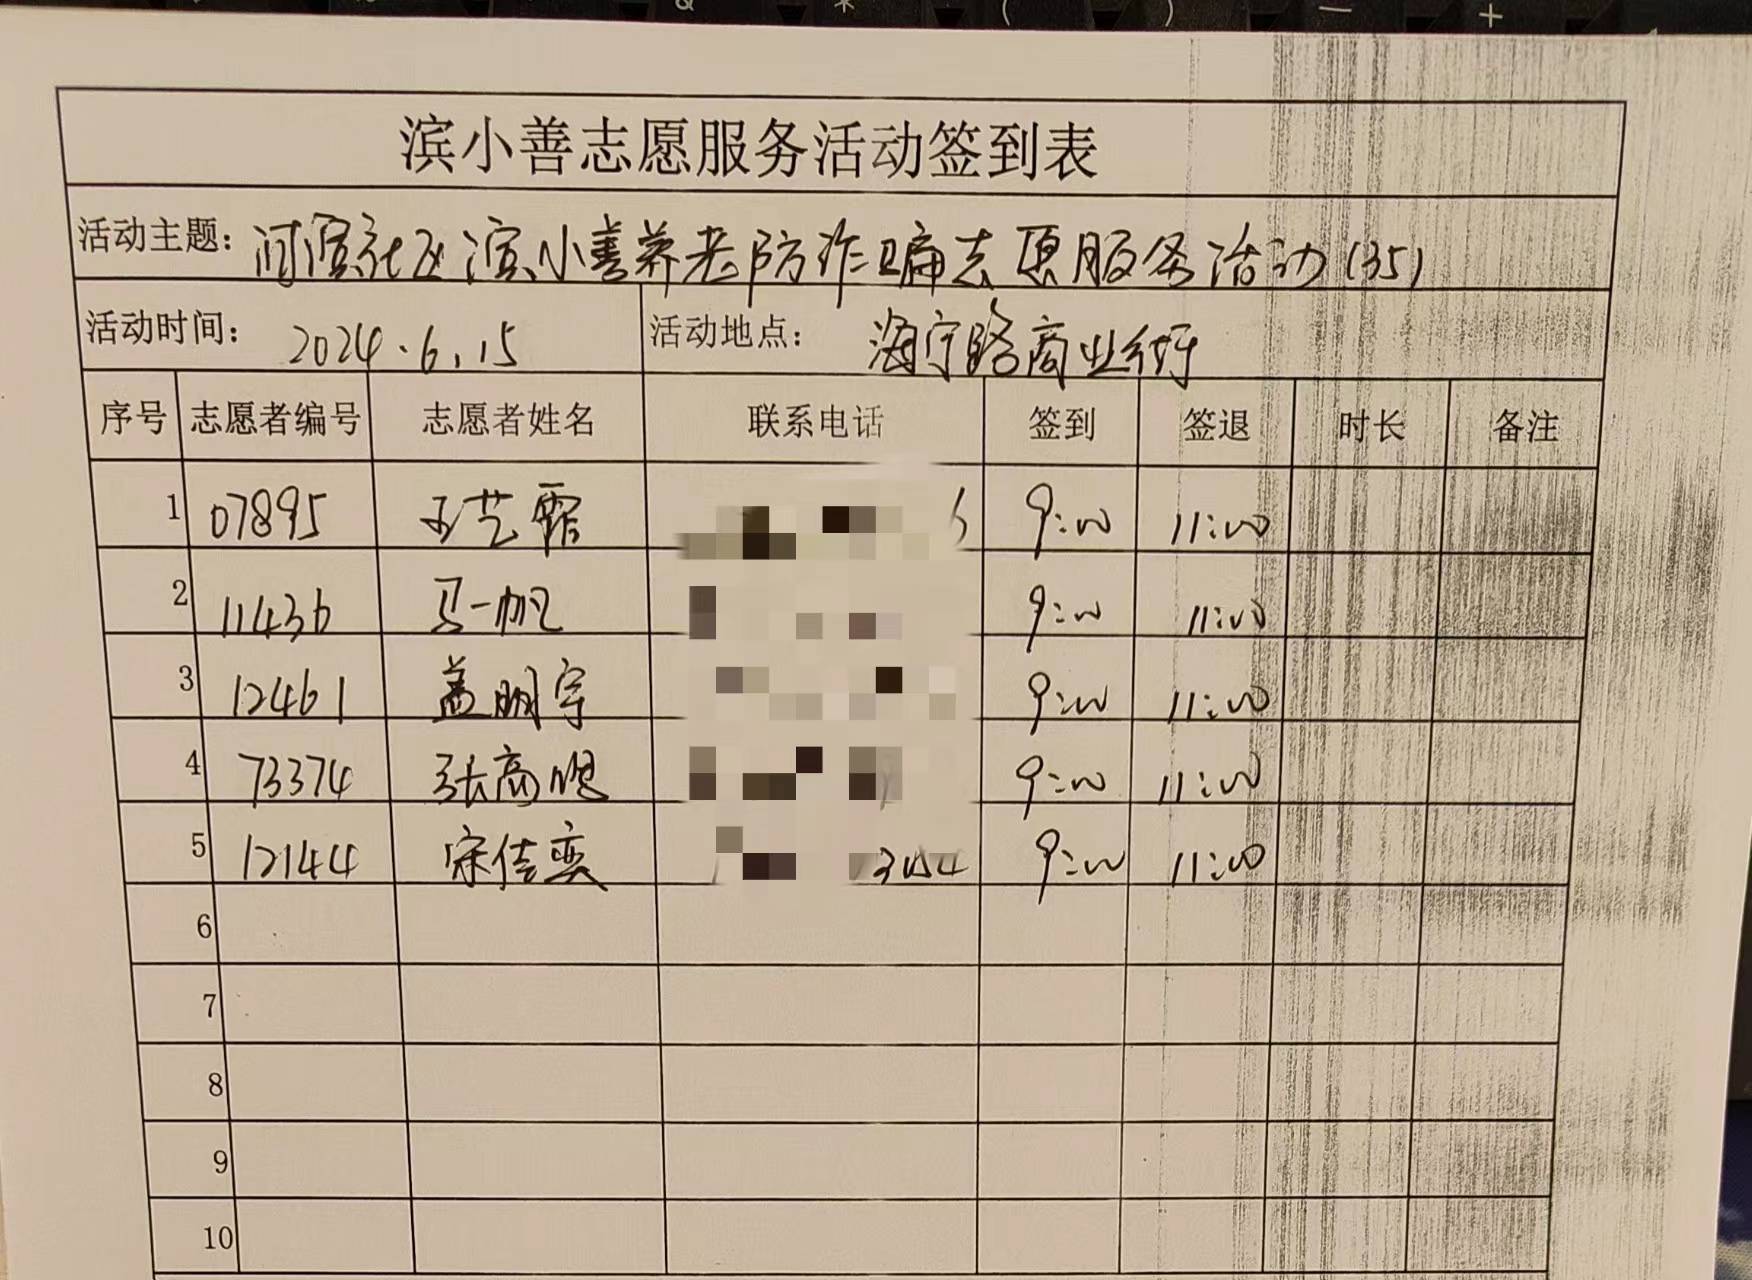 滨小善志愿服务活动签到表
活动主题: 河滨社区滨小善养老防诈骗志愿服务活动(35)
活动时间: 2024.6.15 活动地点: 海宁路商业街
序号 志愿者编号 志愿者姓名 联系电话 签到 签退 时长 备注
1 07895 9:00 11:00
2 11436 马一帆 9:00 11:00
3 12461 盖明宇 9:00 11:00
4 73374 9:00 11:00
5 12144 宋佳奕 9:00 11:00
6
7
8
9
10